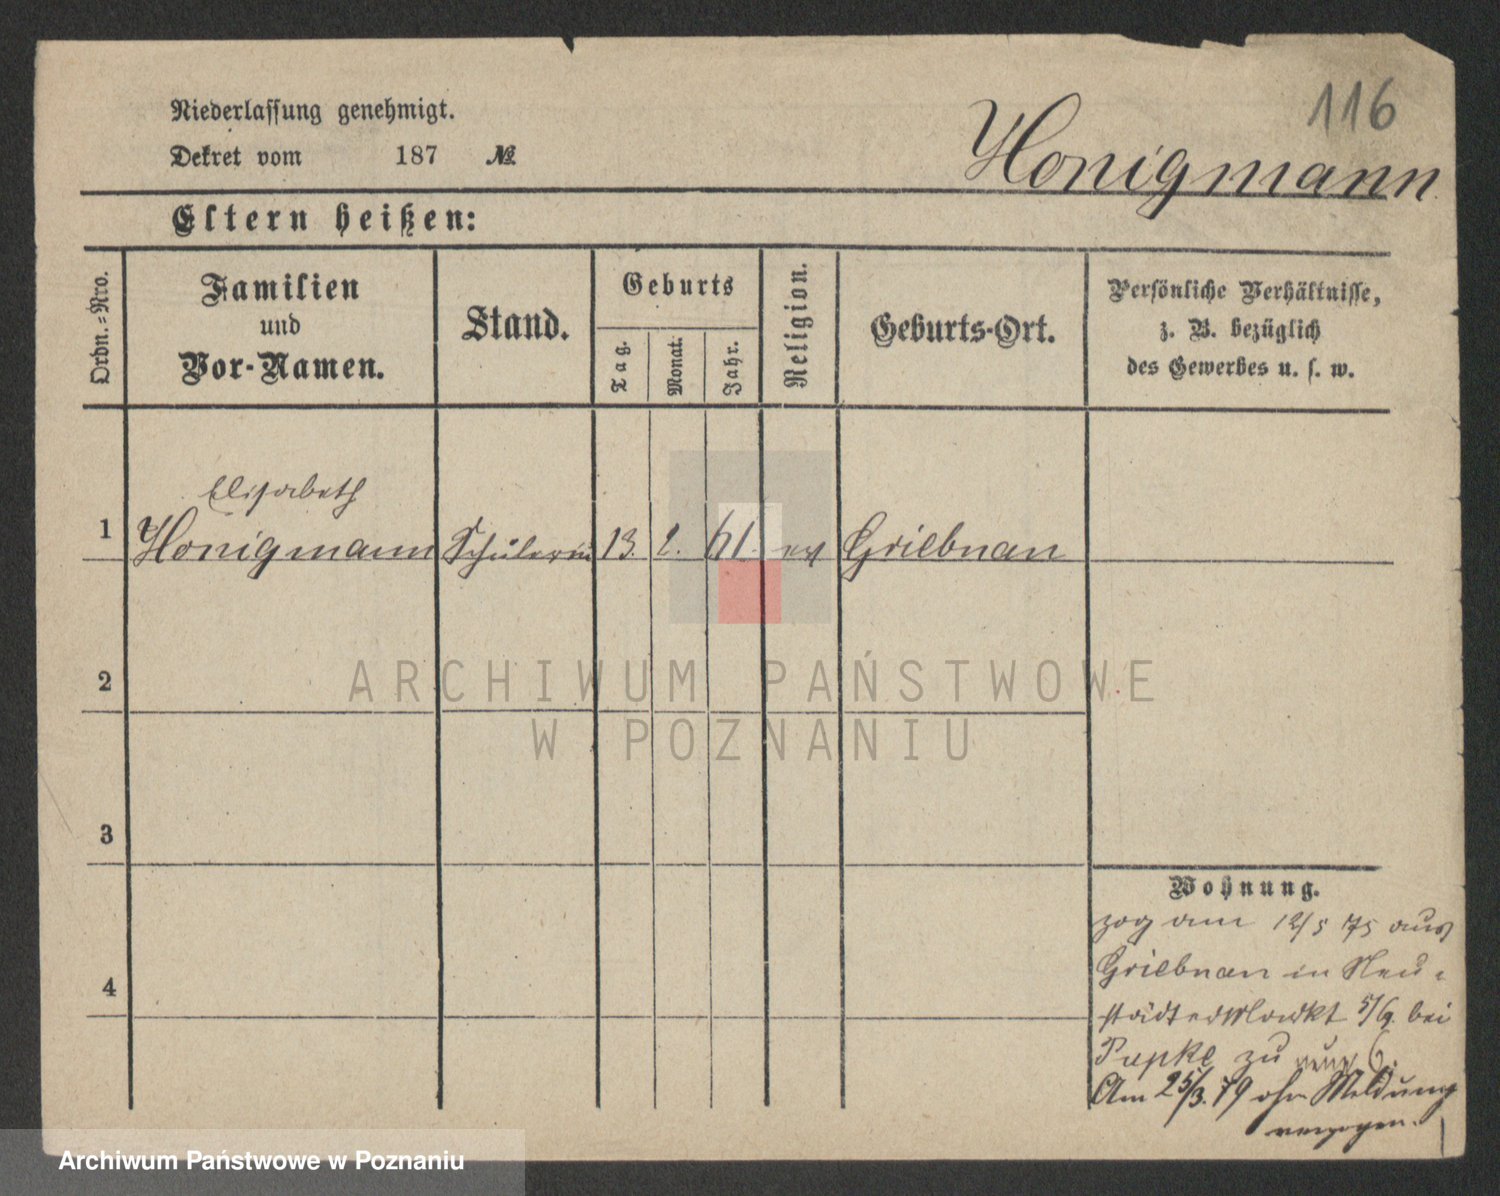 116
Niederlassung genehmigt.
Dekret vom 187 №
Honigmann
Eltern heißen:
Ordn.-Nro.
Familien und Vor-Namen.
Stand.
Geburts
Tag.
Monat.
Jahr.
Religion.
Geburts-Ort.
Persönliche Verhältnisse,
z. B. bezüglich
des Gewerbes u. s. w.
Elisabeth
1 Honigmann Schülerin 13. 2. 61. ev Griebnau
2
3
4
Wohnung.
zog am 12/5 75 aus
Griebnau in Neu-
städtermarkt 5/6. bei
Papke zu
Am 25/3. 79 ohn Meldung
verzogen.
ARCHIWUM PAŃSTWOWE
W POZNANIU
Archiwum Państwowe w Poznaniu